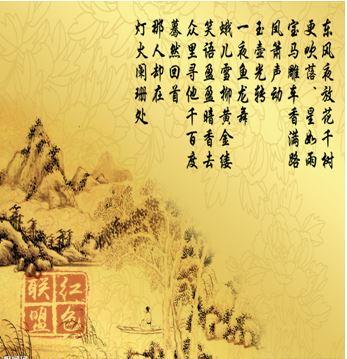 东风夜放花千树
更吹落、星如雨
宝马雕车香满路
凤箫声动
玉壶光转
一夜鱼龙舞
娥儿雪柳黄金缕
笑语盈盈暗香去
众里寻他千百度
蓦然回首
那人却在
灯火阑珊处
红色
联盟